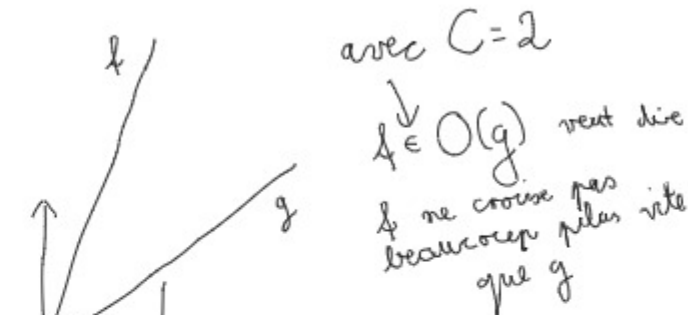 f
g
avec C=2
f ∈ O(g) veut dire
f ne croise pas
beaucoup plus vite
que g